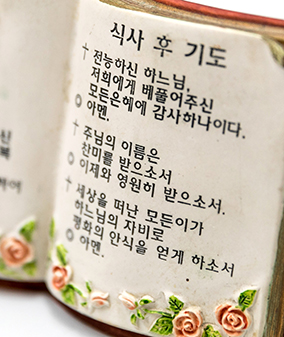 식사 후 기도
† 전능하신 하느님,
저희에게 베풀어주신
모든은혜에 감사하나이다.
◎ 아멘.
† 주님의 이름은
찬미를 받으소서
◎ 이제와 영원히 받으소서.
† 세상을 떠난 모든이가
하느님의 자비로
평화의 안식을 얻게 하소서
◎ 아멘.